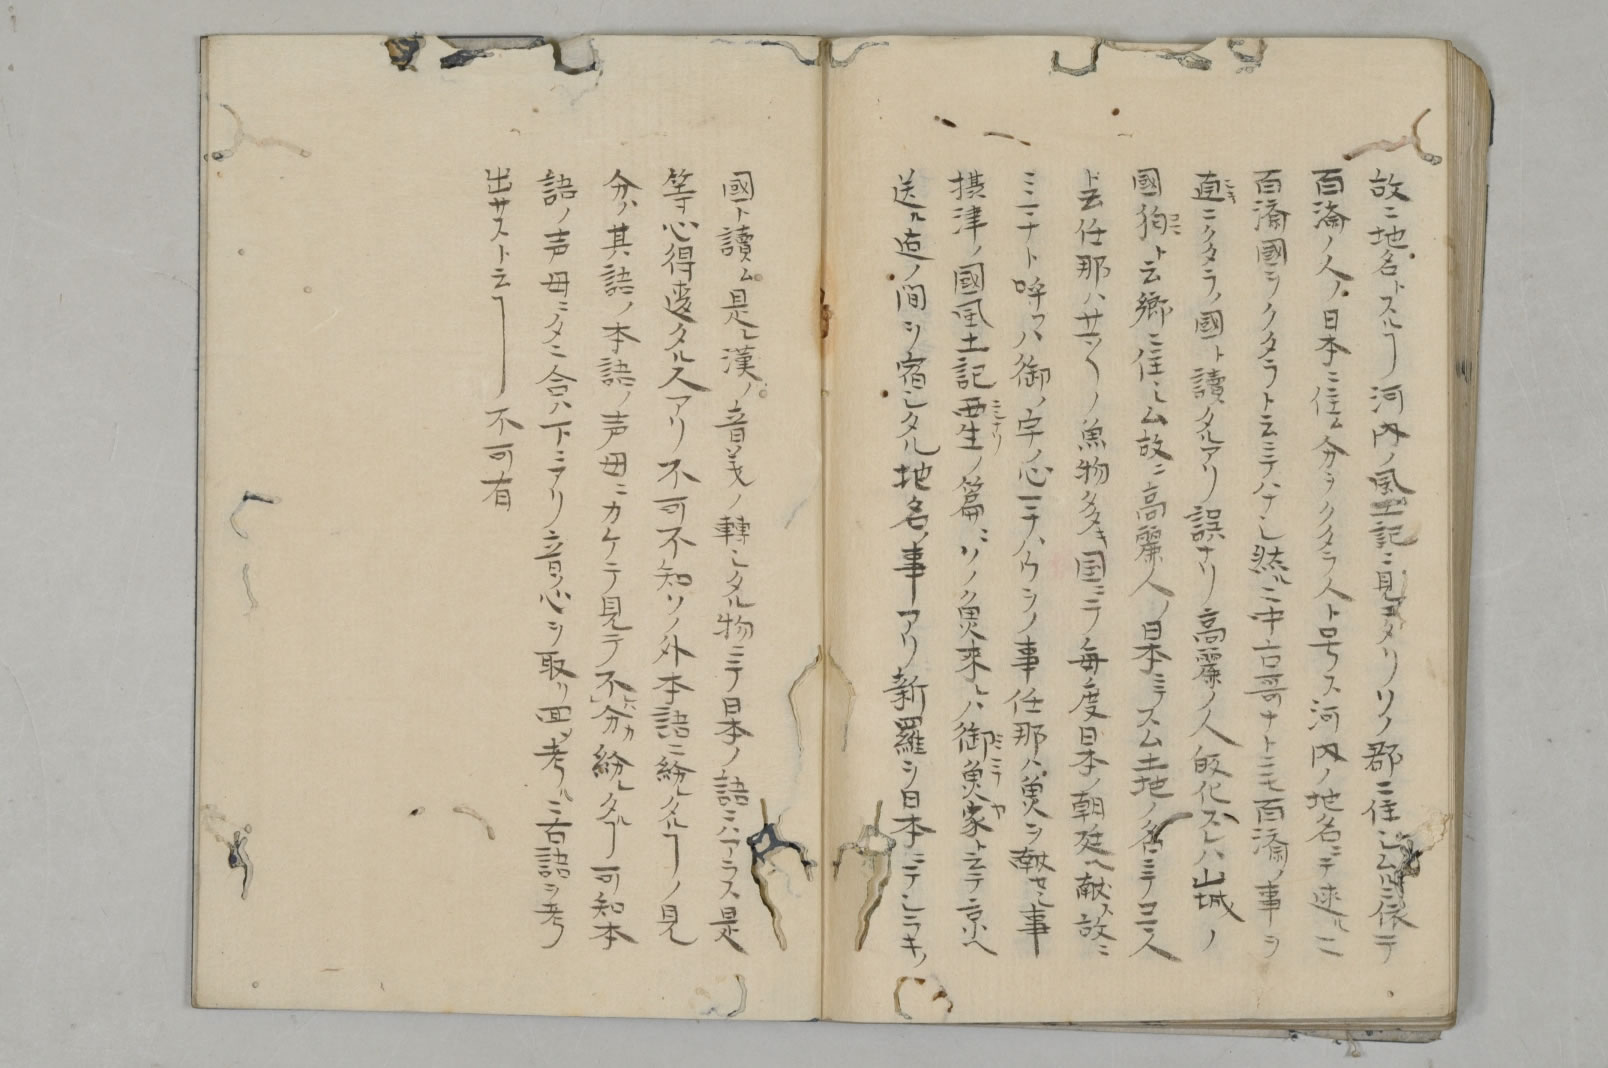 故ニ地名トスルヿ河内ノ風土記ニ見ヱタリソノ郡ニ住シムルニ依テ
百濟ノ人ノ日本ニ住ム分ヲクタラ人ト号ス河内ノ地名ニテ
百濟國ヲクタラト云ニテハナシ然ルニ中古哥ナトニモ百濟ノ事ヲ
直ニクタラノ國ト讀タルアリ誤ナリ高麗ノ人皈化スレハ山城ノ
國狛ト云郷ニ住シム故ニ高麗人ノ日本ニテスム土地ノ名ニテコマ人
ト云任那ハサマ〱ノ魚物多キ国ニテ毎度日本ノ朝廷ヘ献ス故ニ
ミマナト呼フハ御ノ字ノ心ニテハウヲノ事任那ハ魚ヲ献セシ事
摂津ノ國風土記西生ノ篇ニソノ魚来レハ御魚家ト云テ京ヘ
送ル迠ノ間ヲ宿シタル地名ノ事アリ新羅ヲ日本ニテシラキノ
國ト讀ム是レ漢ノ音義ノ轉シタル物ニテ日本ノ語ニハアラス是
等心得違タル人アリ不可不知ソノ外本語ニ紛レタルヿノ見
分ハ其語ノ本語ノ声母ニカケテ見テ不分ハ紛レタルヿ可知本
語ノ声母ニタニ合ハ下ニアリ音ノ心ヲ取リ回ツ考ルニ古語ヲ考
出サスト云ヿ不可有